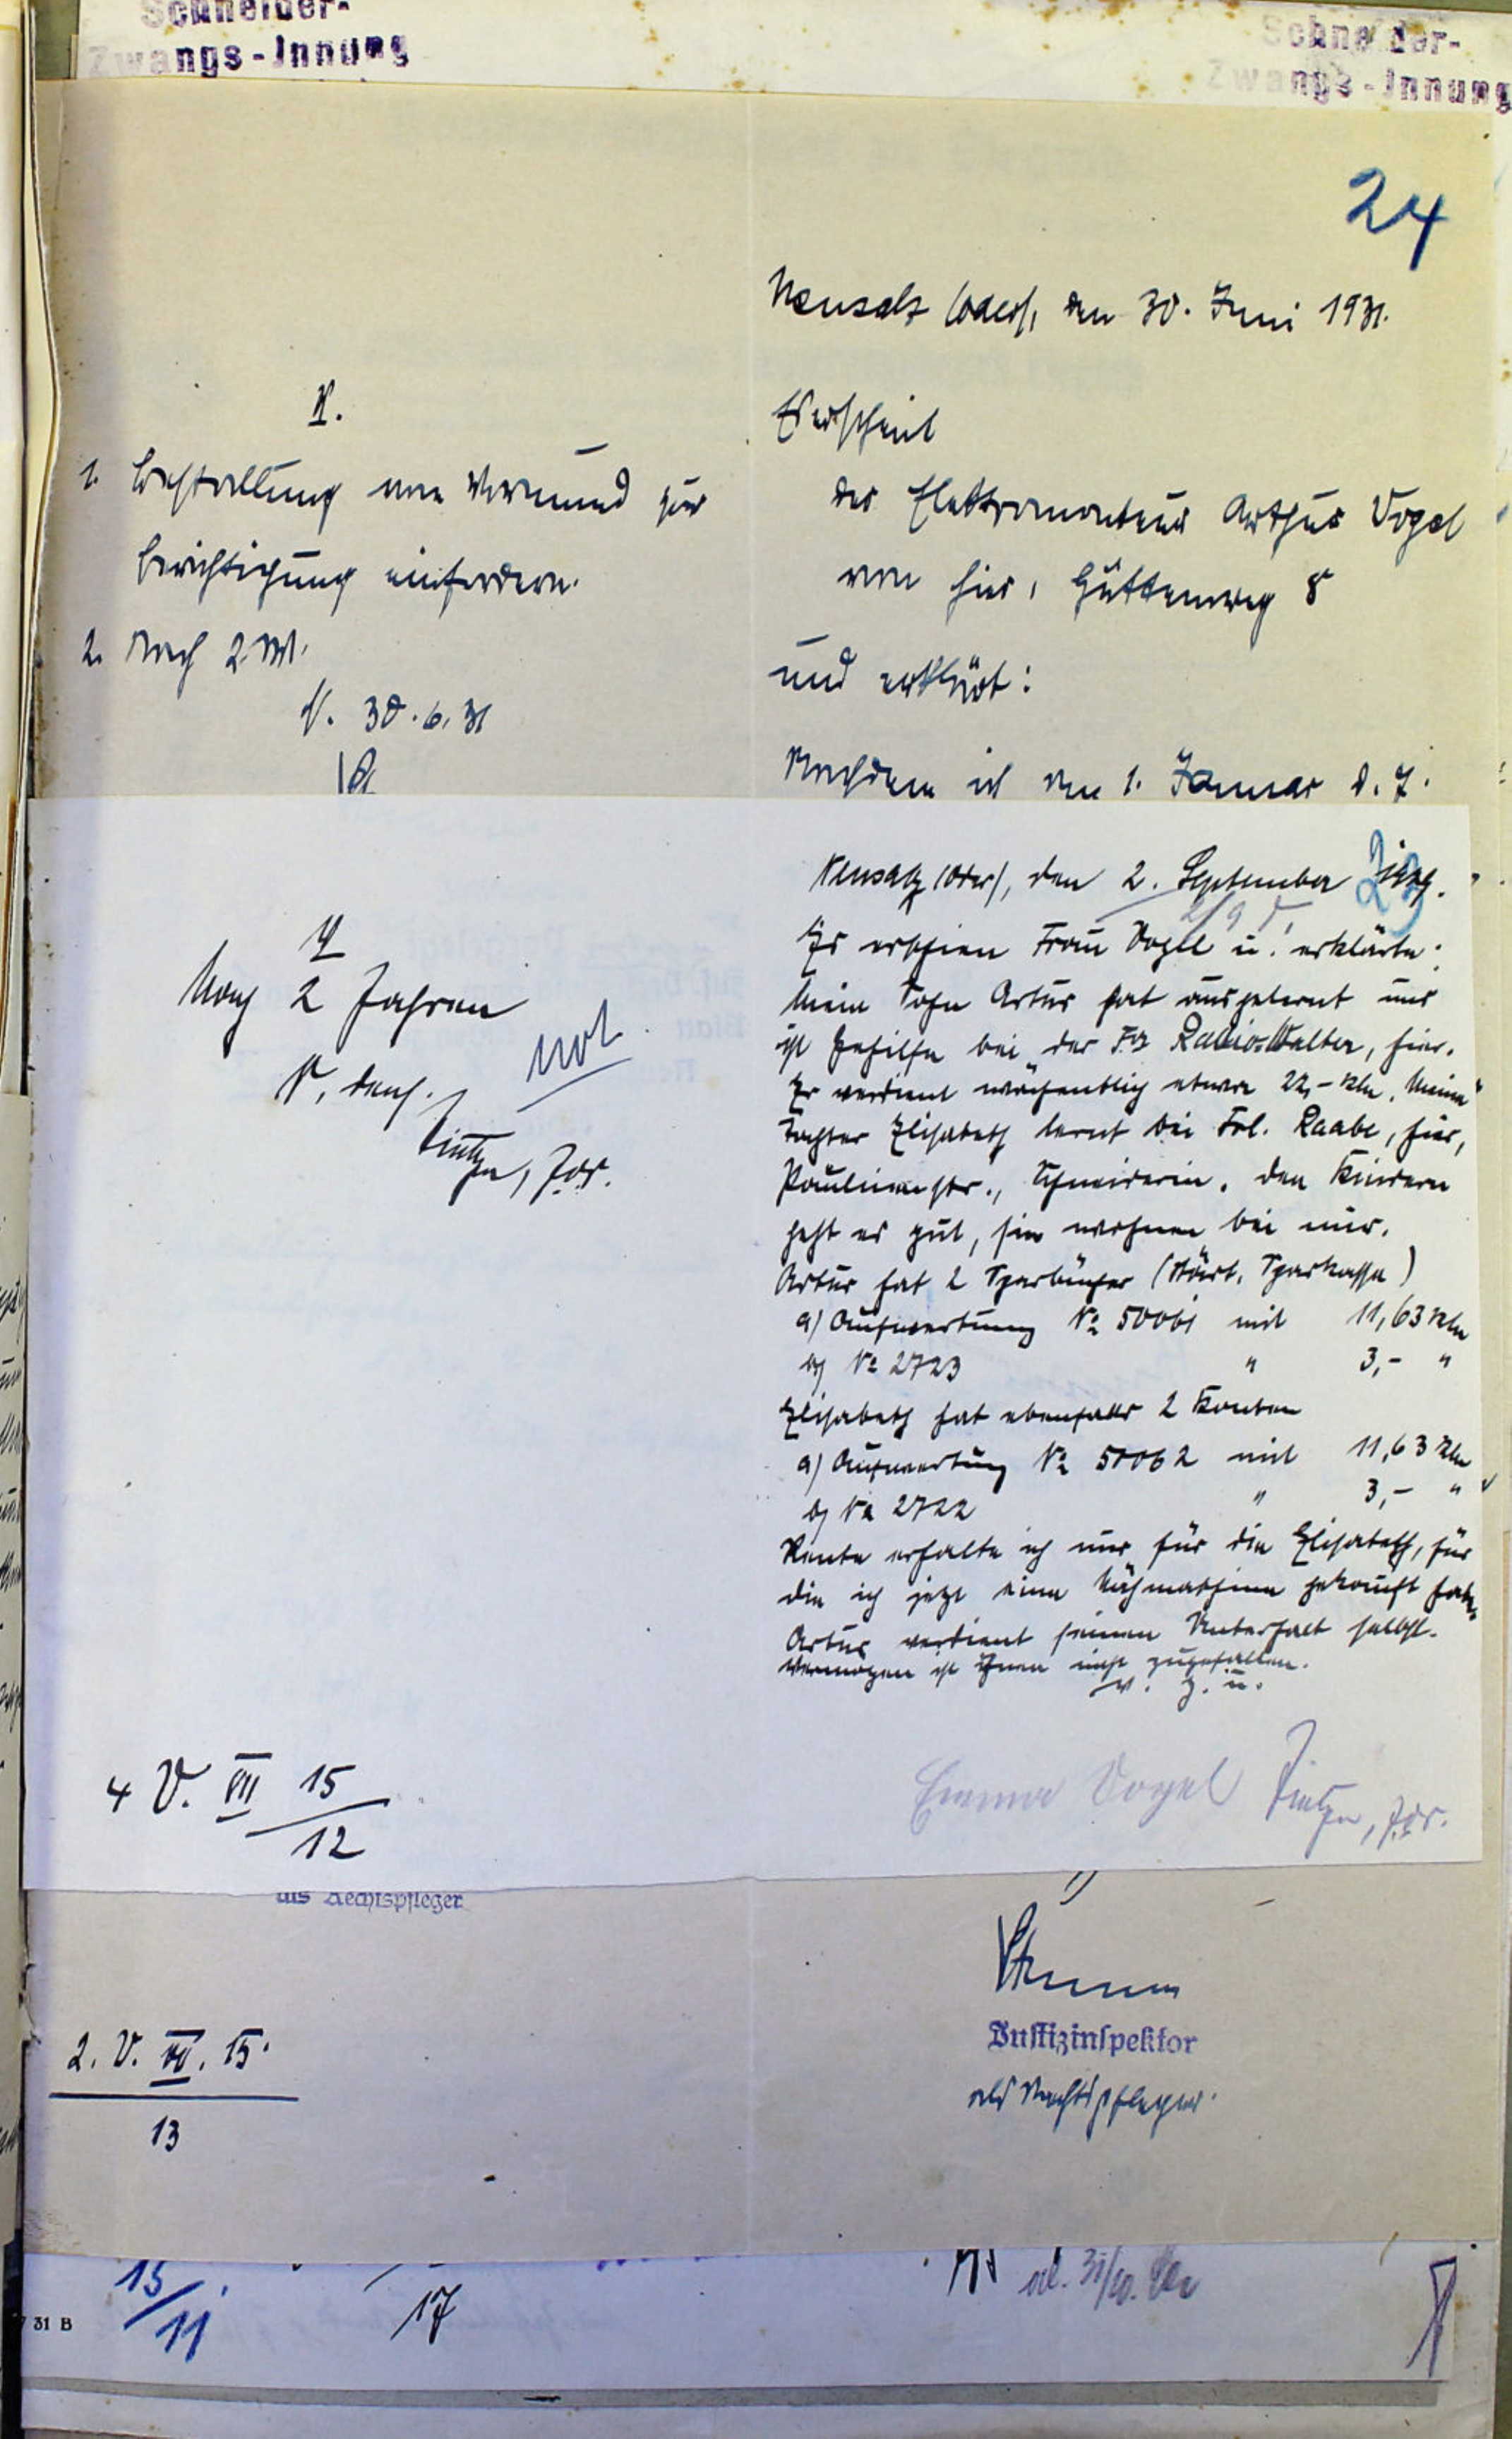 Schneider-
Zwangs-Innung
Schneider-
Zwangs-Innung
24
Neusalz (Oder), den 30. Juni 1931.
V.
1. Bestallung vom Vormund zur
Berichtigung einfordern.
2. Nach 2 M.
N. 30.6.31
Erscheint
der Elektromonteur Arthur Vogel
von hier, Hüttenweg 8
und erklärt:
Nachdem ich am 1. Januar d. J.
Neusalz (Oder), den 2. September
23
2/9
Es erschien Frau Vogel u. erklärte:
Mein Sohn Artur hat ausgelernt und
ist Gehilfe bei der Fa Radio-Walter, hier.
Er verdient wöchentlich etwa 22,- RM. Meine
Tochter Elisabeth lernt bei Frl. Raabe, hier,
Paulinenstr., Schneiderin. Den Kindern
geht es gut, sie wohnen bei mir.
Artur hat 2 Sparbücher (Städt. Sparkasse)
a) Aufwertung No 50061 mit 11,63 RM
b) No 2723 " 3,- "
Elisabeth hat ebenfalls 2 Konten
a) Aufwertung No 50062 mit 11,63 RM
b) No 2722 " 3,- "
Rente erhalte ich nur für die Elisabeth, für
die ich jetzt eine Nähmaschine gekauft habe.
Artur verdient seinen Unterhalt selbst.
Vermögen ist ihnen nicht zugefallen.
v. g. u.
Emma Vogel
V
Nach 2 Jahren
not
N. dens.
4 V. VII 15
12
als Rechtspfleger
Justizinspektor
als Rechtspfleger.
2. V. VII. 15.
13
15/11
17
31 B